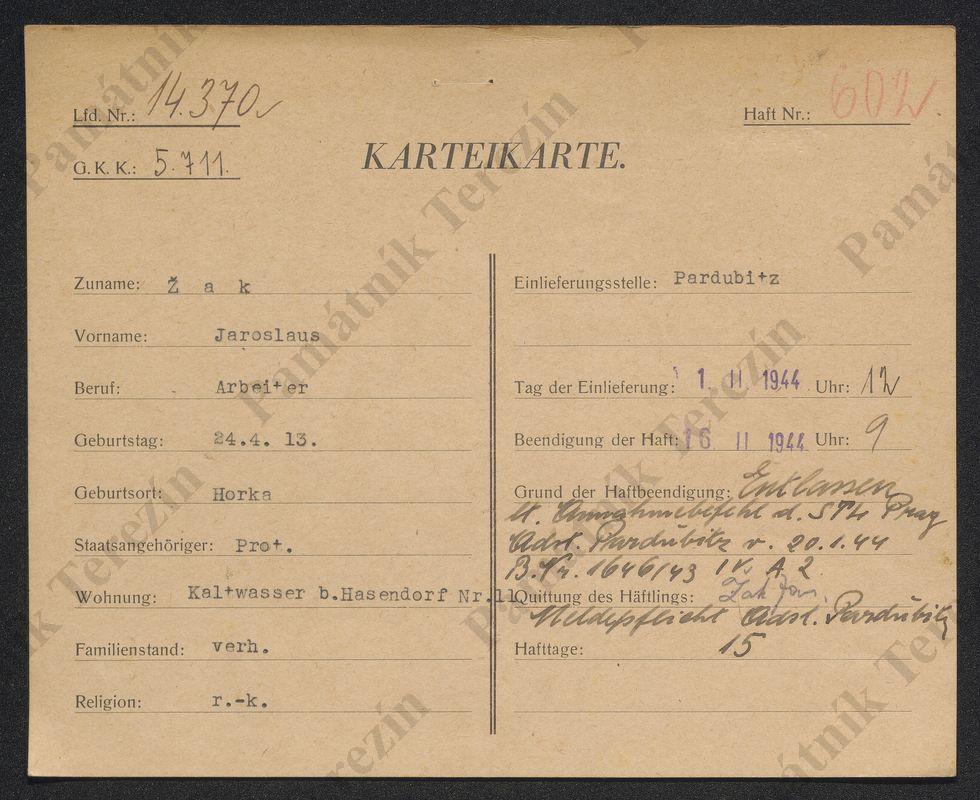 Lfd. Nr.: 14.370
Haft Nr.: 602
G. K. K.: 5.711.
KARTEIKARTE.
Zuname: Ž a k
Vorname: Jaroslaus
Beruf: Arbeiter
Geburtstag: 24.4. 13.
Geburtsort: Horka
Staatsangehöriger: Prot.
Wohnung: Kaltwasser b.Hasendorf Nr.11
Familienstand: verh.
Religion: r.-k.
Einlieferungsstelle: Pardubitz
Tag der Einlieferung: 1. II 1944 Uhr: 12
Beendigung der Haft: 16 II 1944 Uhr: 9
Grund der Haftbeendigung: Entlassen
lt. Annahmebefehl d. STL Prag
Adst. Pardubitz v. 20.1.44
B.Nr. 1646/43 IV. A 2
Quittung des Häftlings: Žak Jar.
Meldepflicht Adst. Pardubitz
Hafttage: 15
Památník Terezín
Památník Terezín
Památník Terezín
Památník Terezín